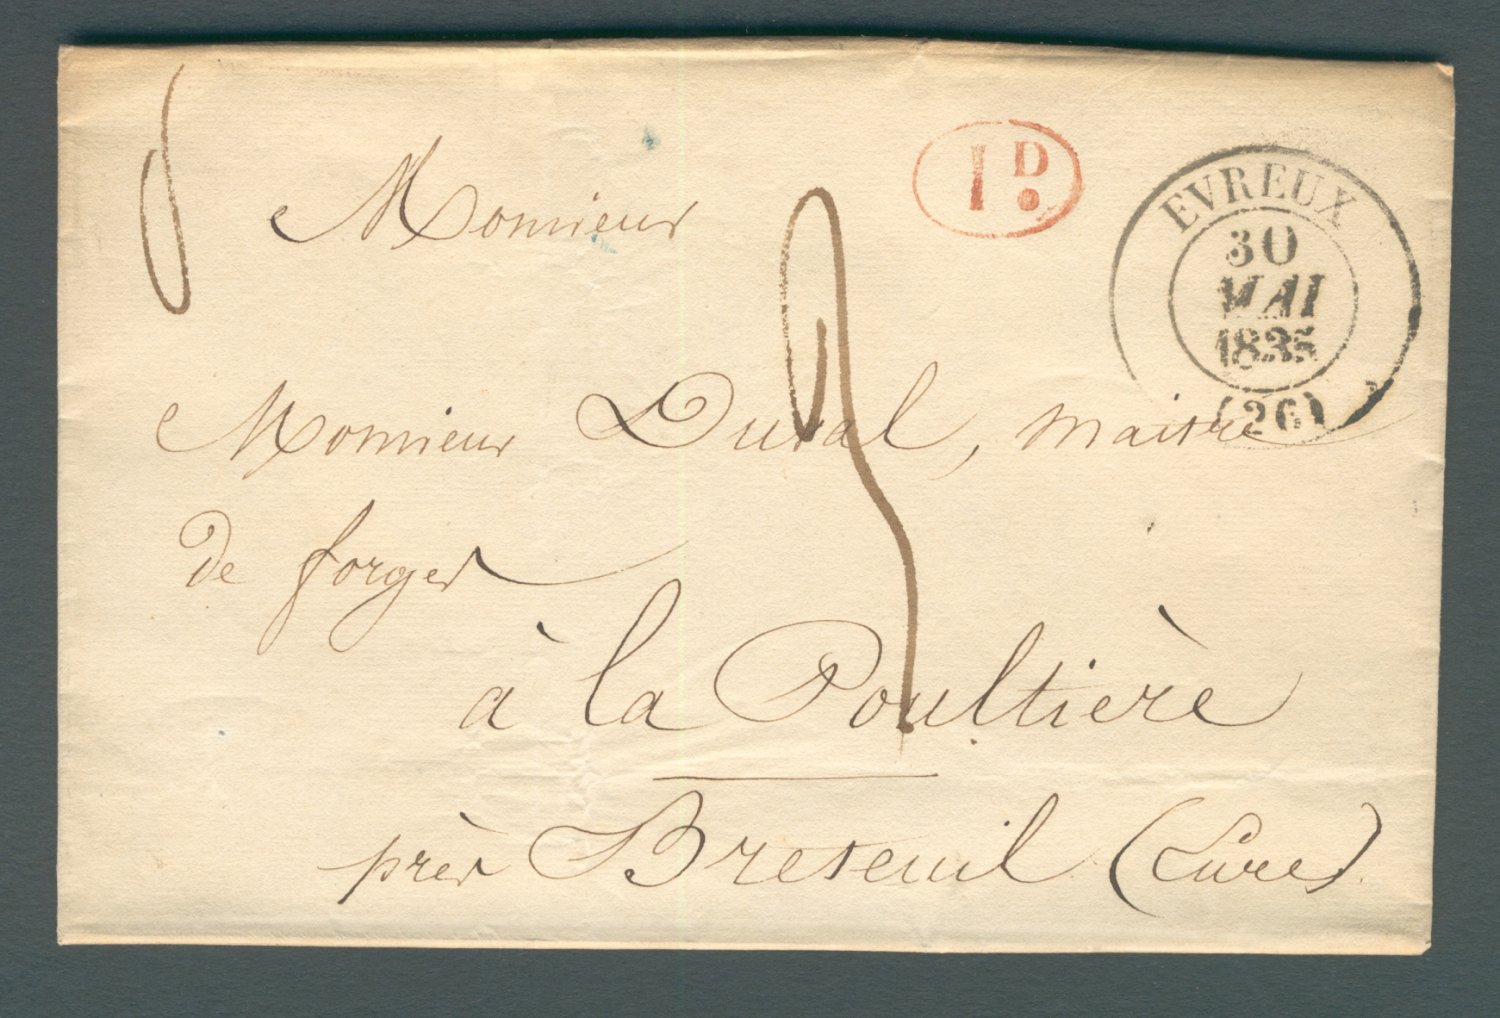 Monsieur
1 D
EVREUX
30
MAI
1835
(26)
Monsieur Duval, maitre
de forges
à la Poultière
près Breteuil (Eure)